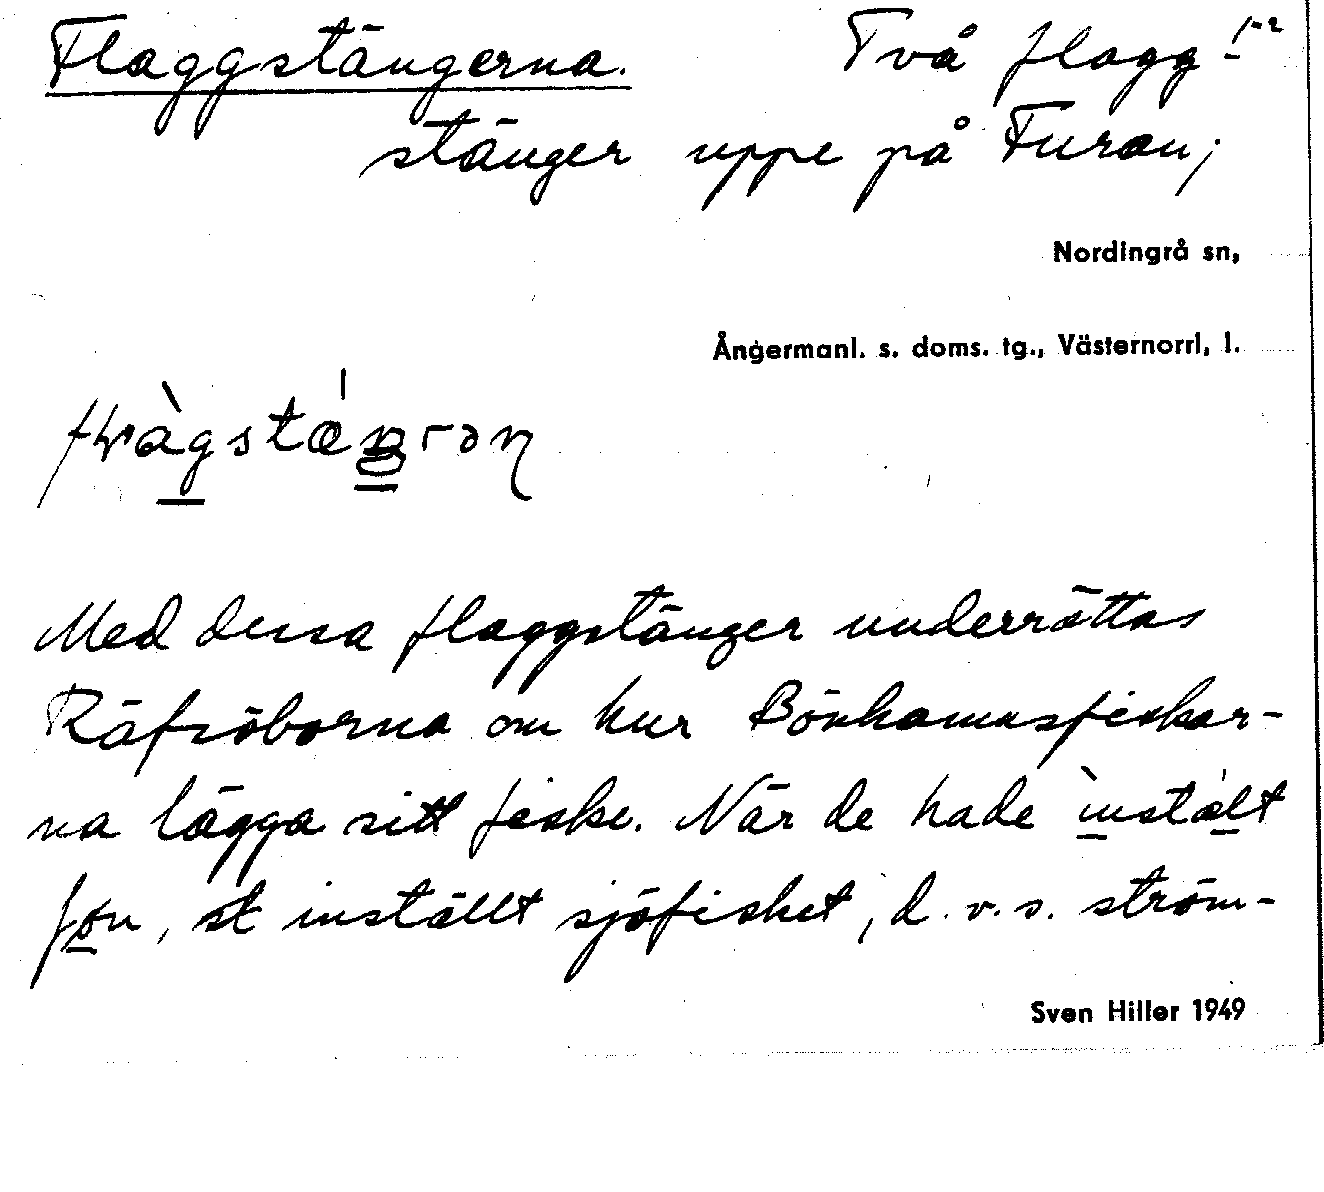 Flaggstängerna. Två flagg- 1-2
stänger uppe på Furan;
Nordingrå sn,
Ångermanl. s. doms. tg., Västernorrl, l.
Med dessa flaggstänger underrättas
Räfsöborna om hur Bönhamnsfiskar-
na lägga sitt fiske. När de hade ìnstált
fȯn, st inställt sjöfisket, d.v.s. ström-
Sven Hiller 1949